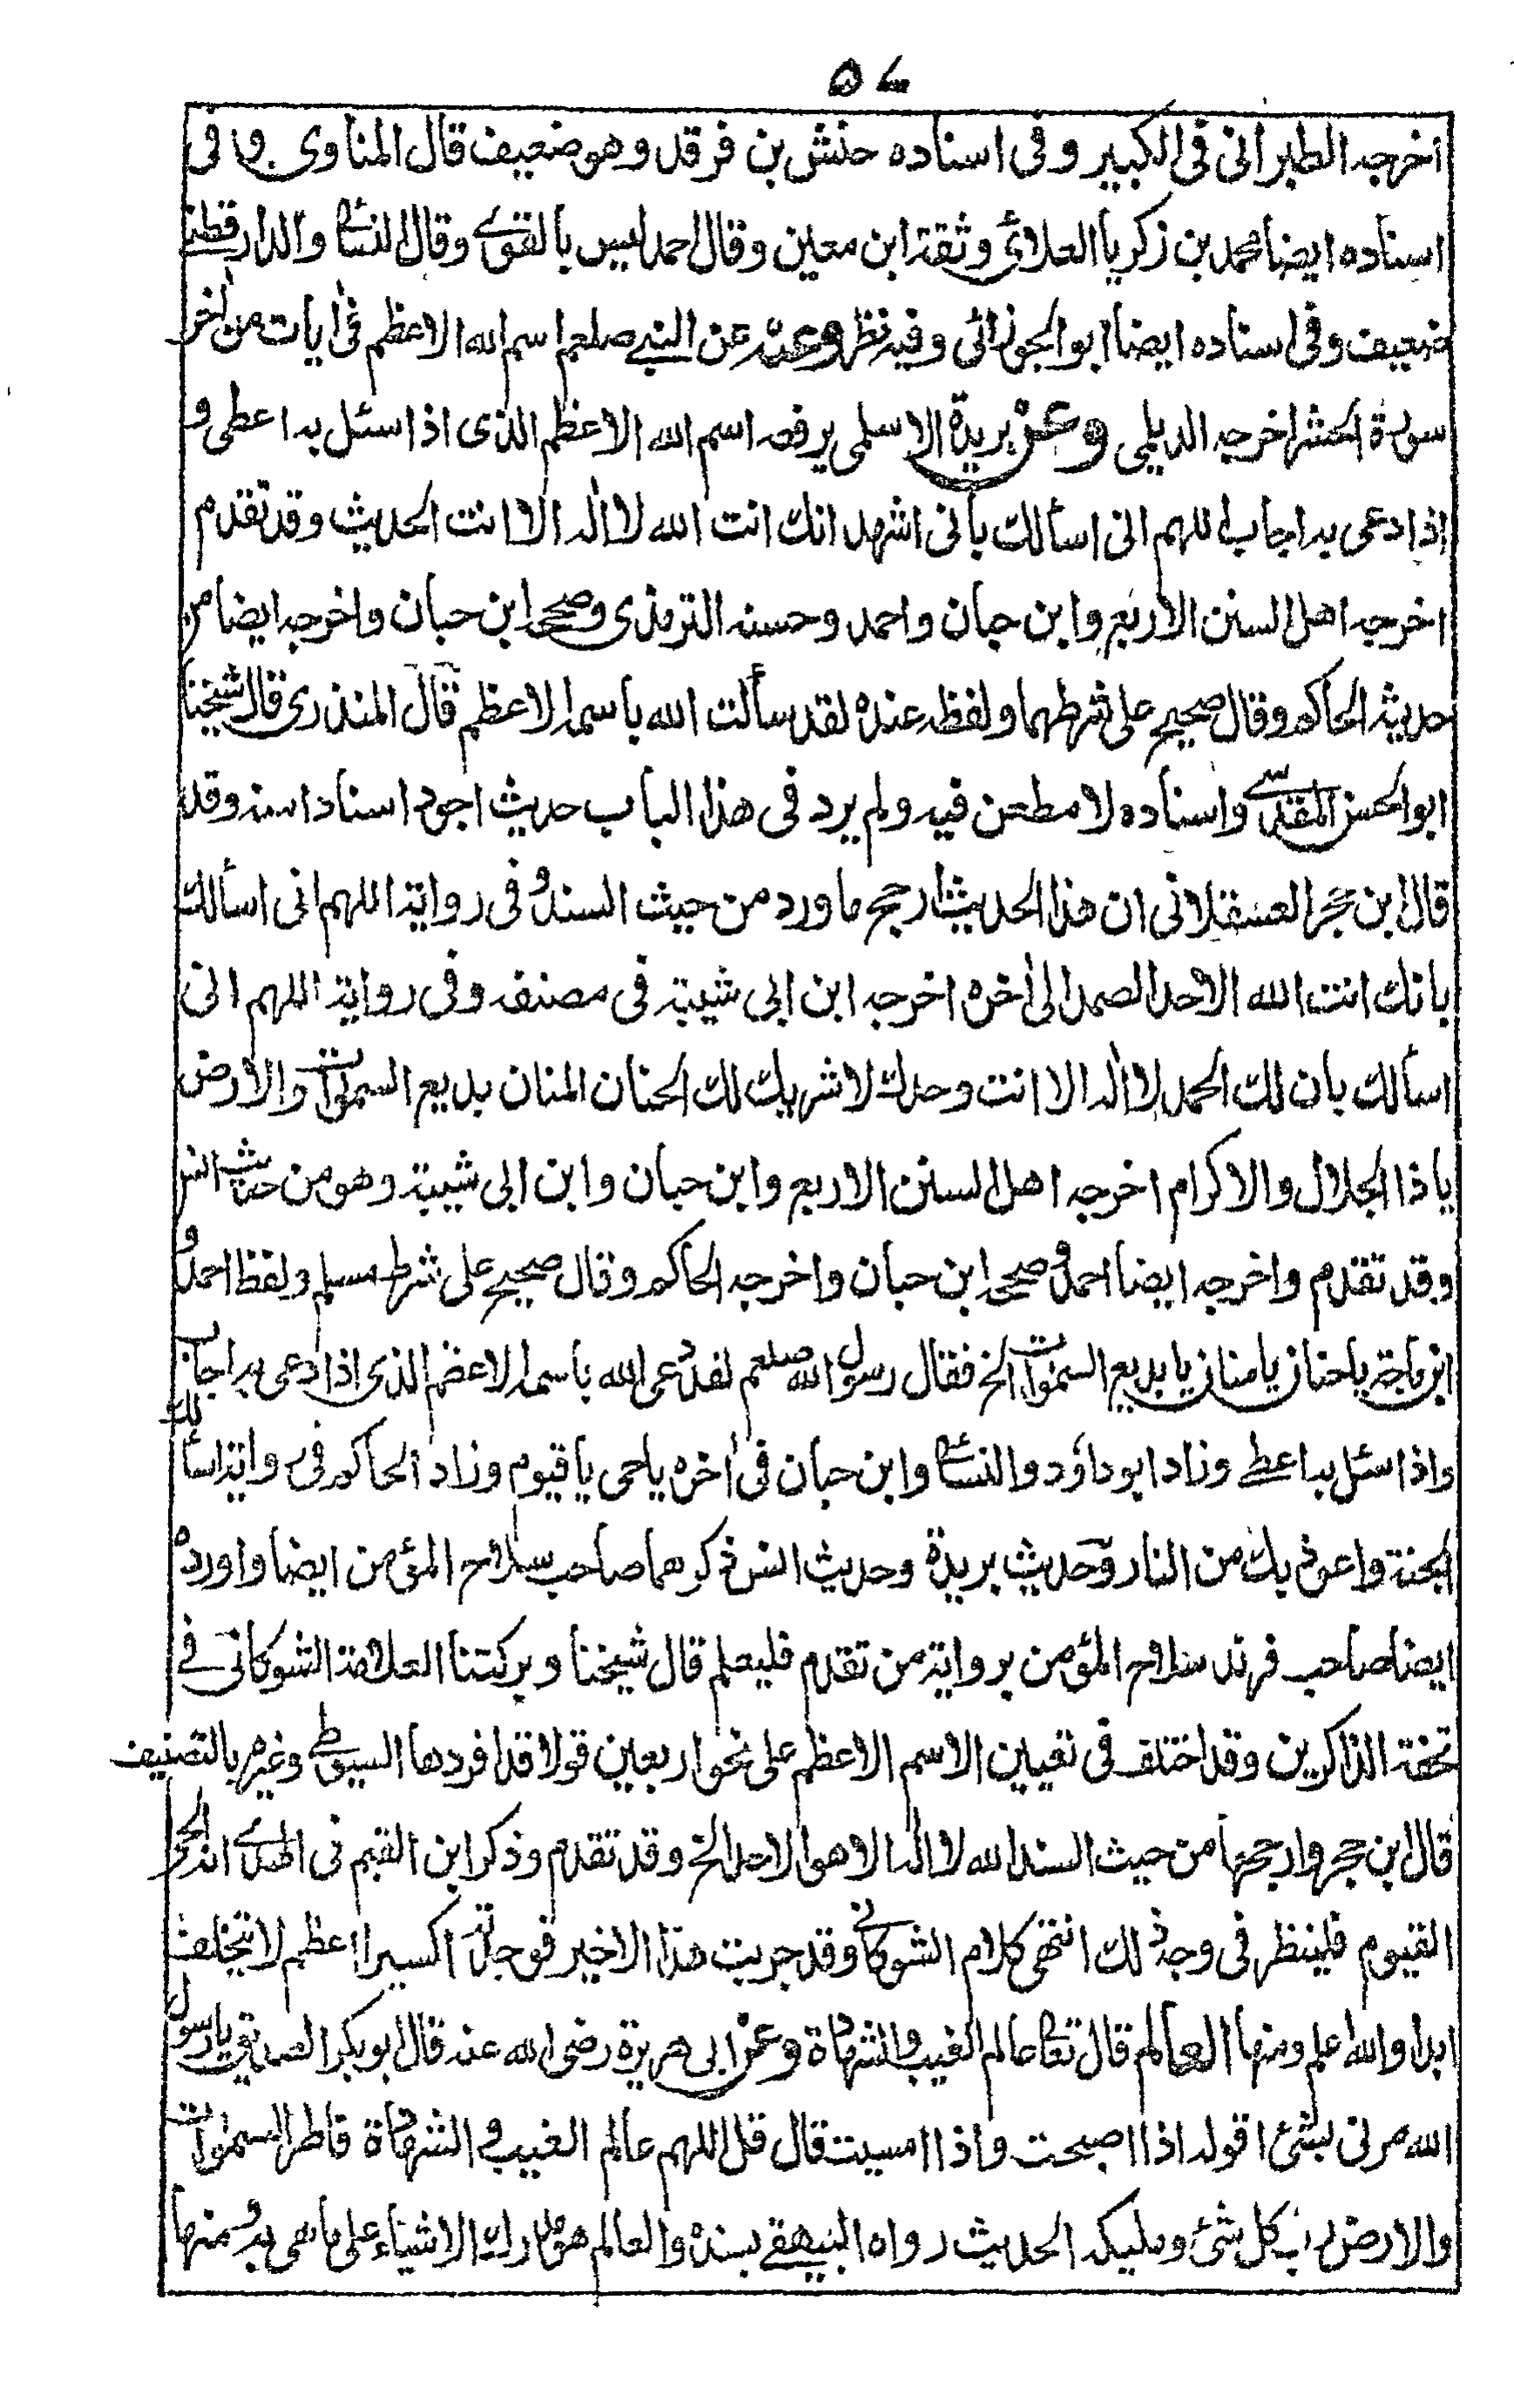 ٥٧
اخرجه الطبرانى فى الكبير وفى اسناده حنش بن فرقد وهو ضعيف قال المناوى وفى
اسناده ايضا محمد بن زكريا العلائى وثقة ابن معين وقال احمد ليس بالقوى وقال النسائى والدارقطنى
ضعيف وفى اسناده ايضا ابو الجوزائى وفيه نظر وعنه عن النبى صلعم اسم الله الاعظم فى ايات من اخر
سورة الحشر اخرجه الديلمى وعن بريدة الاسلمى يرفعه اسم الله الاعظم الذى اذا سئل به اعطى و
اذا دعى به اجاب اللهم انى اسألك بأنى اشهد انك انت الله لا اله الا انت الحديث وقد تقدم
اخرجه اهل السنن الاربع وابن حبان واحمد وحسنه الترمذى وصححه ابن حبان واخرجه ايضا من
حديثه الحاكم وقال صحيح على شرطهما ولفظه عنده لقد سألت الله باسمه الاعظم قال المنذرى قال شيخنا
ابو الحسن المقدسى واسناده لا مطعن فيه ولم يرد فى هذا الباب حديث اجود اسنادا منه وقد
قال ابن حجر العسقلانى ان هذا الحديث ارجح ما ورد من حيث السند و فى رواية اللهم انى اسألك
بانك انت الله الاحد الصمد الى اخره اخرجه ابن ابى شيبة فى مصنفه وفى رواية اللهم انى
اسألك بان لك الحمد لا اله الا انت وحدك لا شريك لك الحنان المنان بديع السموات والارض
يا ذا الجلال والاكرام اخرجه اهل السنن الاربع وابن حبان وابن ابى شيبة وهو من حديث انس
وقد تقدم واخرجه ايضا احمد وصححه ابن حبان واخرجه الحاكم وقال صحيح على شرط مسلم ولفظ احمد و
ابن ماجة يا حنان يا منان يا بديع السموات الخ فقال رسول الله صلعم لقد دعى الله باسمه الاعظم الذى اذا دعى به اجاب
واذا سئل به اعطى وزاد ابو داود والنسائى وابن حبان فى اخره يا حى يا قيوم وزاد الحاكم فى رواية اسألك
الجنة واعوذ بك من النار وحديث بريدة وحديث انس ذكرهما صاحب سلاح المؤمن ايضا واورده
ايضا صاحب فرند سلاح المؤمن برواية من تقدم فليعلم قال شيخنا وبركتنا العلامة الشوكانى فى
تحفة الذاكرين وقد اختلف فى تعيين الاسم الاعظم على نحو اربعين قولا قد افردها السيوطى وغيره بالتصنيف
قال ابن حجر وارجحها من حيث السند الله لا اله الا هو الاحد الخ وقد تقدم وذكر ابن القيم فى الهدى انه الحى
القيوم فلينظر فى وجه ذلك انتهى كلام الشوكانى وقد جربت هذا الاخير فوجدته اكسيرا اعظم لا يتخلف
ابدا والله اعلم ومنها العالم قال تعالى عالم الغيب والشهادة وعن ابى هريرة رضى الله عنه قال ابو بكر الصديق يا رسول
الله مرنى بشئ اقوله اذا اصبحت واذا امسيت قال قل اللهم عالم الغيب و الشهادة فاطر السموات
والارض رب كل شئ ومليكه الحديث رواه البيهقى بسنده والعالم هو مدرك الاشياء على ما هى به ومنها